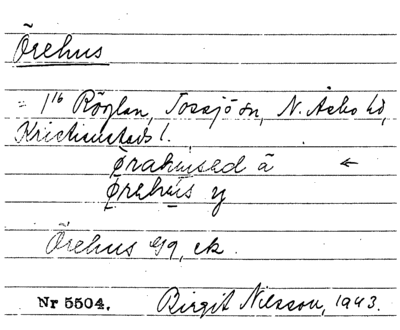 Örehus
= 1/16 Röglan, Tossjö sn, N. Åsbo hd,
Kristianstads l.
Ørahused ä ←
Ørahus y
Örehus gg, ek.
Nr 5504. Birgit Nilsson, 1943.